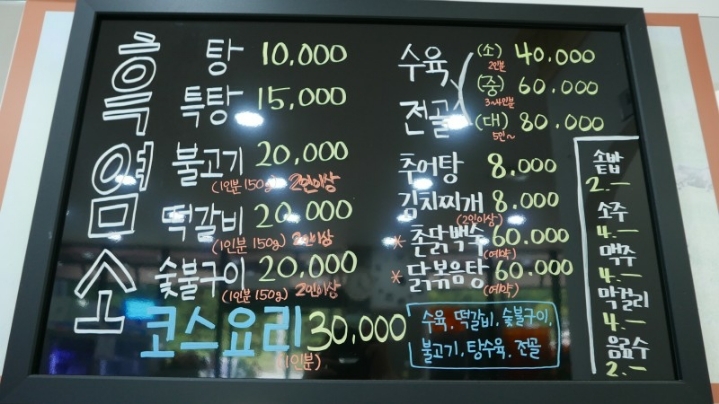 흑염소
탕 10,000
특탕 15,000
불고기 20,000
(1인분 150g) 2인이상
떡갈비 20,000
(1인분 150g) 2인이상
숯불구이 20,000
(1인분 150g) 2인이상
코스요리 30,000
(1인분)
수육, 떡갈비, 숯불구이,
불고기, 탕수육, 전골
수육
전골
(소) 40,000
2인분
(중) 60,000
3~4인분
(대) 80,000
5인~
추어탕 8,000
김치찌개 8,000
(2인이상)
* 촌닭백숙 60,000
(예약)
* 닭볶음탕 60,000
(예약)
솥밥
2.-
소주
4.-
맥주
4.-
막걸리
4.-
음료수
2.-